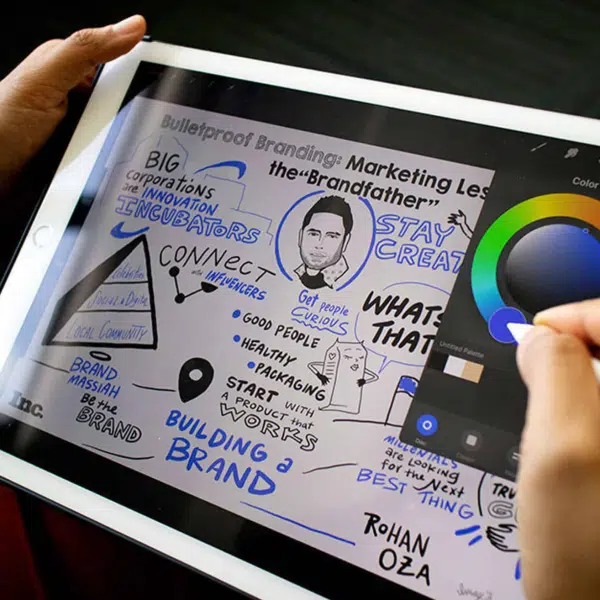 Bulletproof Branding: Marketing Les
the "Brandfather"
BIG
corporations
are INNOVATION
INCUBATORS
STAY
CREAT
CONNECT
with INFLUENCERS
Get people
CURIOUS
WHATS
THAT
Celebrities
Social & Digital
Local Community
• GOOD PEOPLE
• HEALTHY
• PACKAGING
BRAND
MASSIAH
Be the
BRAND
START WITH
A PRODUCT that
WORKS
Inc.
BUILDING a
BRAND
MILLENIALS
are LOOKING
for the Next
BEST THING
TRU
ROHAN
OZA
Color
Untitled Palette
Disc